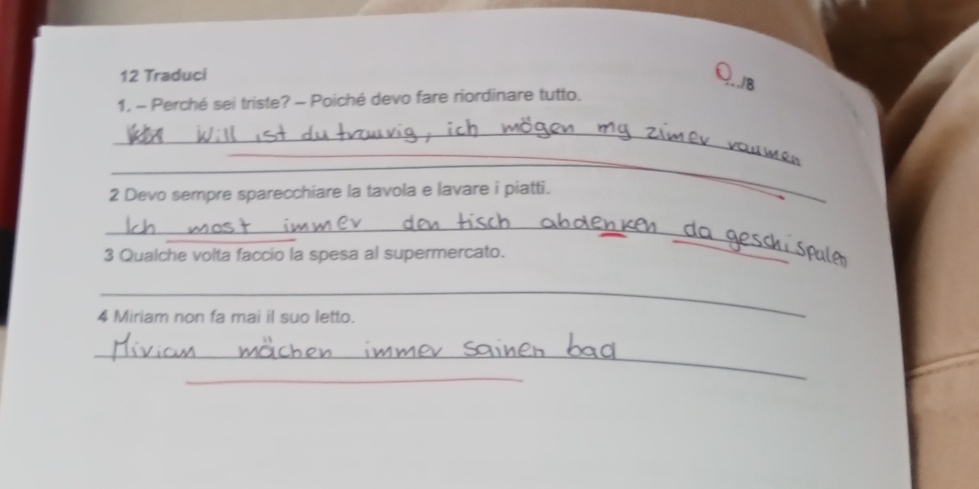 12 Traduci
0.../8
1. – Perché sei triste? – Poiché devo fare riordinare tutto.
Will ist du trauvig, ich mögen my zimer raumen
2 Devo sempre sparecchiare la tavola e lavare i piatti.
Ich most immer den tisch abdenken da geschispalen
3 Qualche volta faccio la spesa al supermercato.
4 Miriam non fa mai il suo letto.
Miriam mächen immer sainen bad